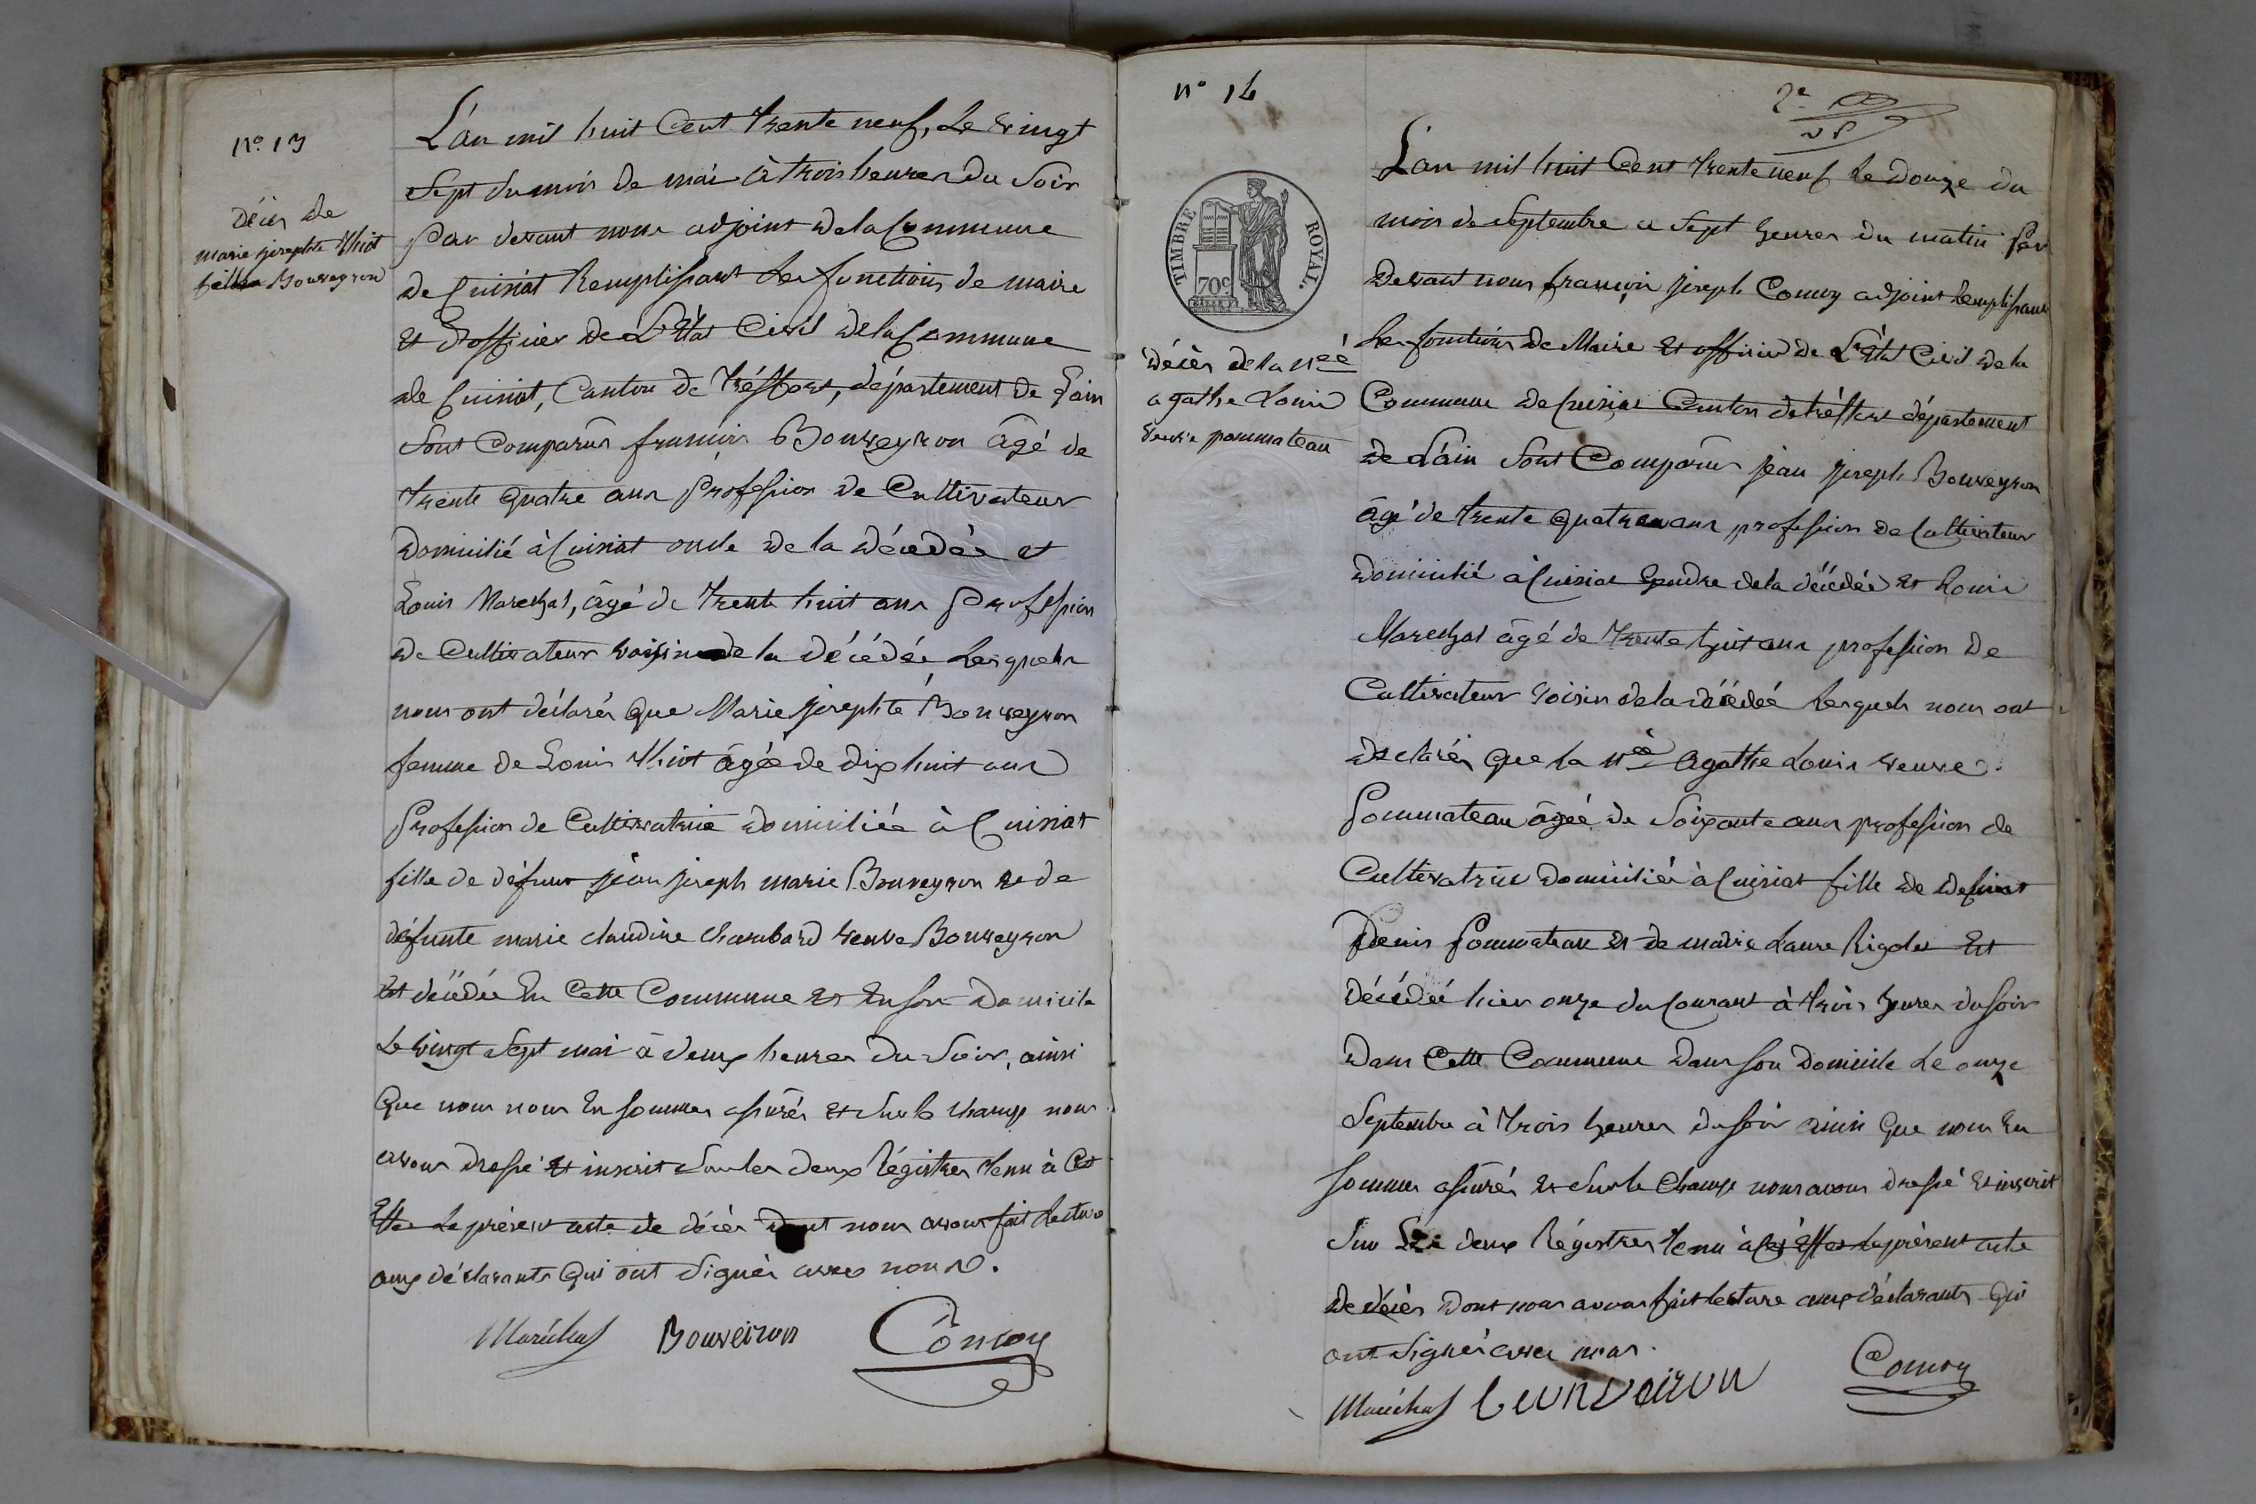 N° 13
Décès de
marie josephte Thiot
fille Bouveyron
L'an mil huit Cent trente neuf, Le vingt
Sept du mois de mai à trois heures du Soir
Par devant nous adjoint de la Commune
de Cuisiat Remplissant les fonctions de maire
et d'officier de L'État Civil de la Commune
de Cuisiat, Canton de Tréffort, département de L'ain
Sont Comparus françois Bouveyron âgé de
trente quatre ans Profession de Cultivateur
Domicilié à Cuisiat oncle de la décédée et
Louis Marechal, âgé de trente huit ans Profession
de Cultivateur voisin de la décédée Lesquels
nous ont déclarés que Marie josephte Bouveyron
femme de Louis Thiot âgée de dix huit ans
Profession de Cultivatrice domiciliée à Cuisiat
fille de défunt jean joseph marie Bouveyron et de
défunte marie claudine chambard veuve Bouveyron
Est décédée En Cette Commune et En son Domicile
Le vingt Sept mai à deux heures du Soir, ainsi
Que nous nous En sommes assurés et Sur le champ nous
avons dressé et inscrit Sur les deux Régistres tenu à Cet
Effet Le présent acte de décès Dont nous avons fait Lecture
aux déclarants Qui ont Signés avec nous.
Maréchal Bouveiron Comoy
N° 14
TIMBRE ROYAL.
70c
décès de la née
agathe Louis
veuve pommateau
2e
L'an mil huit Cent trente neuf Le Douze du
mois de Septembre a Sept heures du matin Par
Devant nous françois joseph Comoy adjoint Remplissant
Les fonctions de Maire et officier de L'État Civil de la
Commune de Cuisiat Canton de tréffort département
de L'ain Sont Comparus jean joseph Bouveyron
âgé de trente quatre ans profession de Cultivateur
Domicilié à Cuisiat Gendre de la décédée et Louis
Marechal âgé de trente huit ans profession de
Cultivateur voisin de la décédée Lesquels nous ont
declarés que la née Agathe Louis veuve
Pommateau âgée de Soixante ans profession de
Cultivatrice Domiciliée à Cuisiat fille de defunt
Denis Pommateau et de marie Laure Rigolet Est
décédée hier onze du Courant à trois heures du Soir
Dans Cette Commune Dans son Domicile Le onze
Septembre à trois heures du Soir ainsi Que nous En
sommes assurés et Sur le Champ nous avons dressé et inscrit
Sur Les deux Régistres tenu à Cet Effet Le présent acte
de décès Dont nous avons fait lecture aux déclarants Qui
ont Signés avec nous.
Maréchal bouveiron Comoy